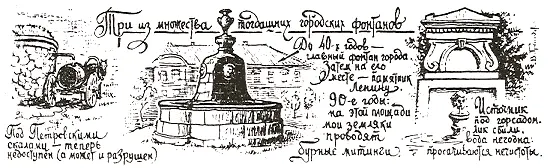 Три из множества тогдашних городских фонтанов
До 40-х годов –
главный фонтан города
затем на его
месте – памятник
Ленину.
90-е годы:
на этой площади
мои земляки
проводят
бурные митинги
Под Петровскими
скалами – теперь
недоступен (а может и разрушен)
Источник
под горсадом.
Лик сбили,
вода негодна:
просачиваются нечистоты.